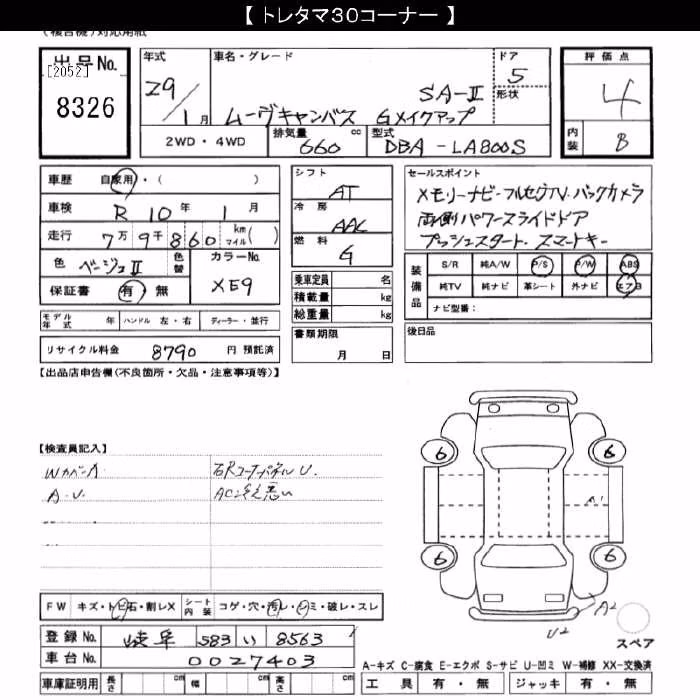 【 トレタマ30コーナー 】
(複合機)対応用紙
出品No.
[2052]
8326
年式
29/1月
車名・グレード
ドア
5
SA-Ⅱ
形状
ムーヴキャンバス Gメイクアップ
2WD・4WD
排気量 660 cc
型式 DBA-LA800S
評価点
4
内装 B
車歴 自家用・( )
車検 R10年1月
走行 7万9千860 km マイル( )
色 ベージュⅡ 色替
カラーNo. XE9
保証書 有・無
シフト AT
冷房 AAC
燃料 G
乗車定員 名
積載量 kg
総重量 kg
書類期限
月 日
セールスポイント
メモリーナビ・フルセグTV・バックカメラ
両側パワースライドドア
プッシュスタート・スマートキー
装備品
S/R 純A/W P/S P/W ABS
純TV 純ナビ 革シート 外ナビ エアB
ナビ型番:
モデル年式 年 ハンドル 左・右 ディーラー・並行
リサイクル料金 8790 円 預託済
後日品
【出品店申告欄(不良箇所・欠品・注意事項等)】
【検査員記入】
Wカバーハ
A・U.
右Rコーナーパネル U.
AC冷え悪い
6 6
A1
6 6
A2
U2
スペア
FW キズ・トビ石・割レX シート内装 コゲ・穴・汚レ・シミ・破レ・スレ
登録No. 岐阜 583 い 8563
車台No. 0027403
車庫証明用 長さ cm 幅 cm 高さ cm
A-キズ C-腐食 E-エクボ S-サビ U-凹ミ W-補修 XX-交換済
工具 有・無 ジャッキ 有・無